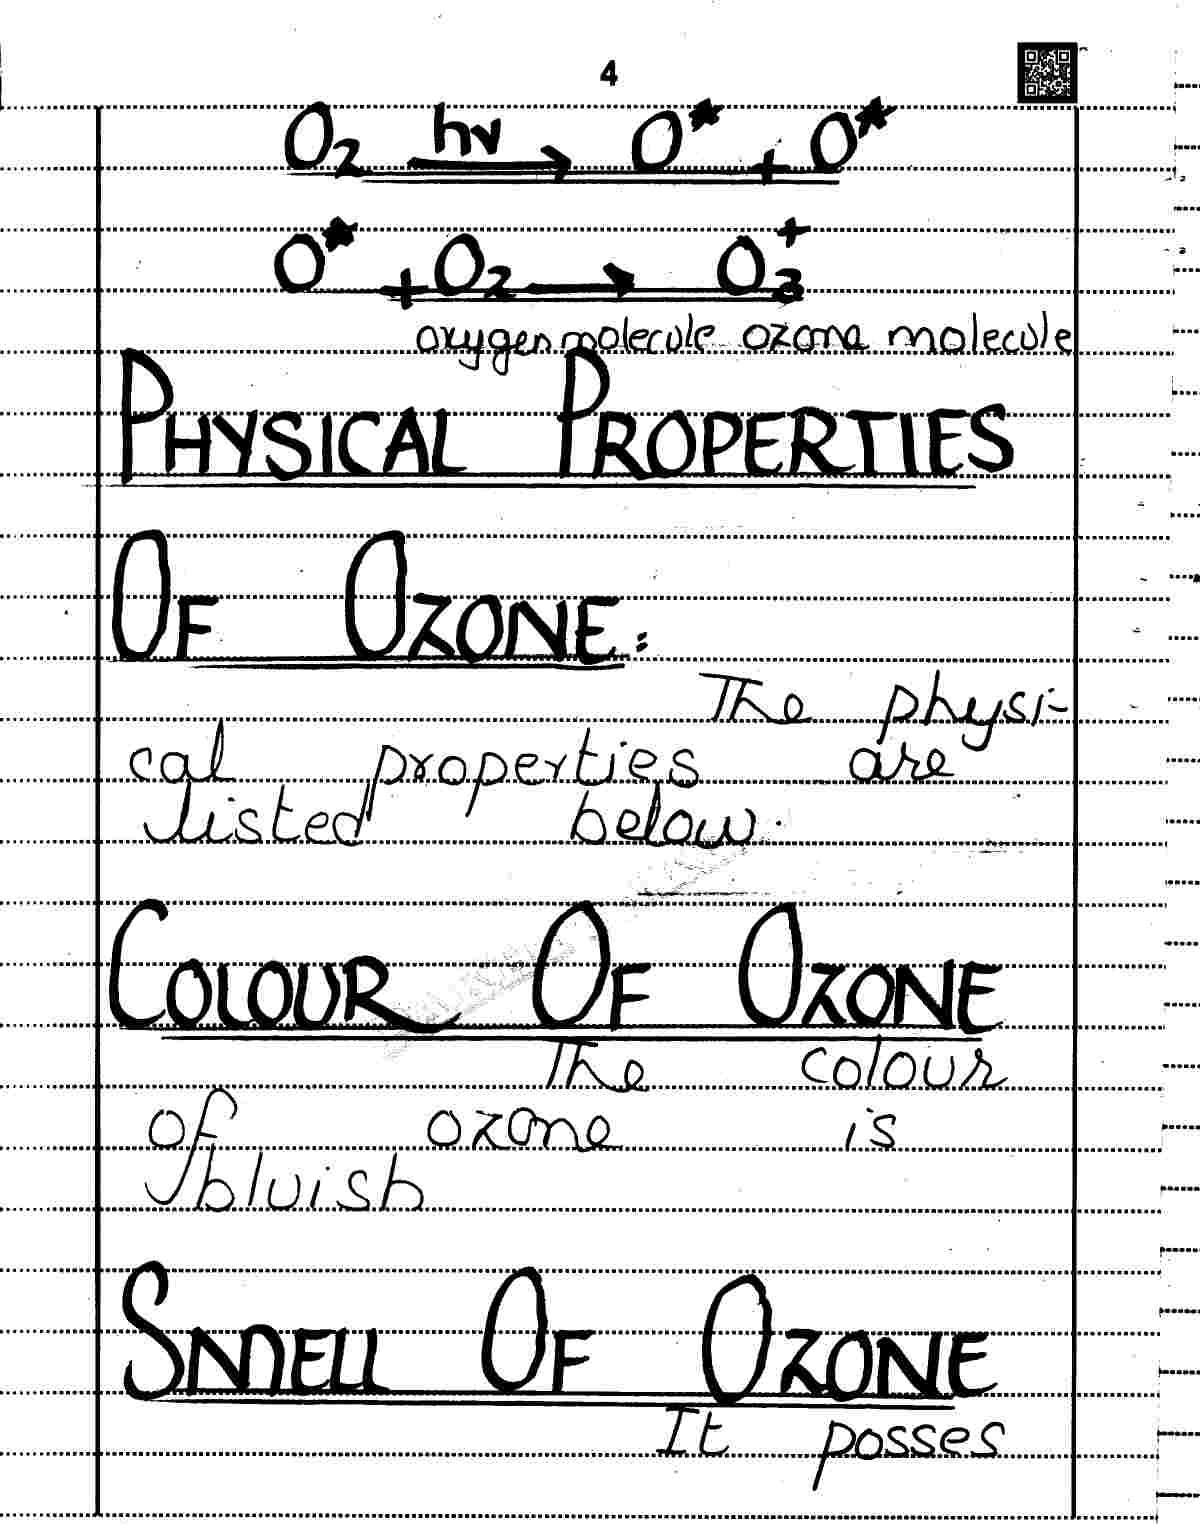 4
O₂ hν → O* + O*
O* + O₂ → O₃⁺
oxygen molecule ozona molecule
PHYSICAL PROPERTIES
OF OZONE:
The physi-
cal properties are
listed below.
COLOUR OF OZONE
The colour
of ozone is
bluish
SMELL OF OZONE
It posses